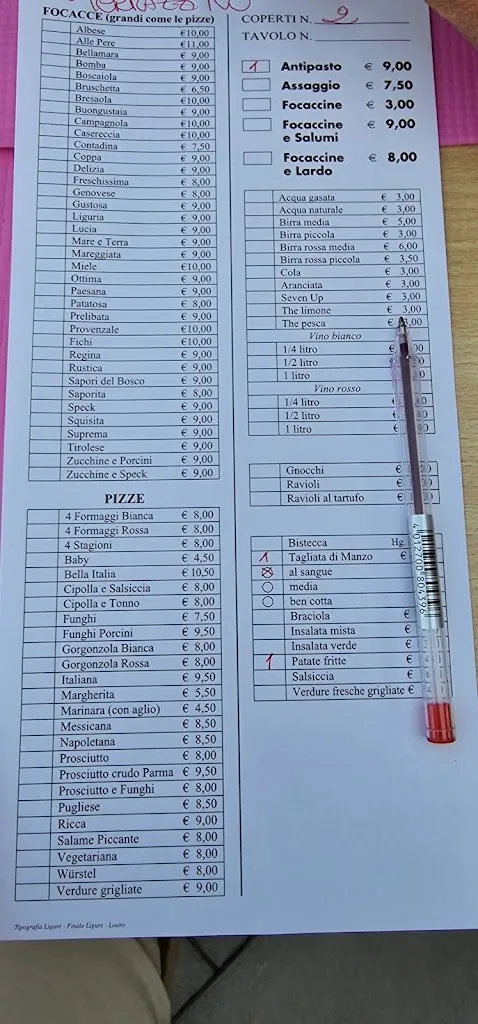 FOCACCE (grandi come le pizze)
Albese €10,00
Alle Pere €11,00
Bellamara € 9,00
Bomba € 9,00
Boscaiola € 9,00
Bruschetta € 6,50
Bresaola €10,00
Buongustaia € 9,00
Campagnola €10,00
Casereccia €10,00
Contadina € 7,50
Coppa € 9,00
Delizia € 9,00
Freschissima € 8,00
Genovese € 8,00
Gustosa € 9,00
Liguria € 9,00
Lucia € 9,00
Mare e Terra € 9,00
Mareggiata € 9,00
Miele €10,00
Ottima € 9,00
Paesana € 9,00
Patatosa € 8,00
Prelibata € 9,00
Provenzale €10,00
Fichi €10,00
Regina € 9,00
Rustica € 9,00
Sapori del Bosco € 9,00
Saporita € 8,00
Speck € 9,00
Squisita € 9,00
Suprema € 9,00
Tirolese € 9,00
Zucchine e Porcini € 9,00
Zucchine e Speck € 9,00
PIZZE
4 Formaggi Bianca € 8,00
4 Formaggi Rossa € 8,00
4 Stagioni € 8,00
Baby € 4,50
Bella Italia € 10,50
Cipolla e Salsiccia € 8,00
Cipolla e Tonno € 8,00
Funghi € 7,50
Funghi Porcini € 9,50
Gorgonzola Bianca € 8,00
Gorgonzola Rossa € 8,00
Italiana € 9,50
Margherita € 5,50
Marinara (con aglio) € 4,50
Messicana € 8,50
Napoletana € 8,50
Prosciutto € 8,00
Prosciutto crudo Parma € 9,50
Prosciutto e Funghi € 8,00
Pugliese € 8,50
Ricca € 9,00
Salame Piccante € 8,00
Vegetariana € 8,00
Würstel € 8,00
Verdure grigliate € 9,00
Tipografia Ligure - Finale Ligure - Loano
COPERTI N. 2
TAVOLO N.
1 Antipasto € 9,00
Assaggio € 7,50
Focaccine € 3,00
Focaccine € 9,00
e Salumi
Focaccine € 8,00
e Lardo
Acqua gasata € 3,00
Acqua naturale € 3,00
Birra media € 5,00
Birra piccola € 3,00
Birra rossa media € 6,00
Birra rossa piccola € 3,50
Cola € 3,00
Aranciata € 3,00
Seven Up € 3,00
The limone € 3,00
The pesca €
Vino bianco
1/4 litro €
1/2 litro €
1 litro €
Vino rosso
1/4 litro €
1/2 litro €
1 litro €
Gnocchi €
Ravioli €
Ravioli al tartufo €
Bistecca Hg.
1 Tagliata di Manzo €
al sangue
media
ben cotta
Braciola €
Insalata mista €
Insalata verde €
1 Patate fritte €
Salsiccia €
Verdure fresche grigliate €
4 012700 804396